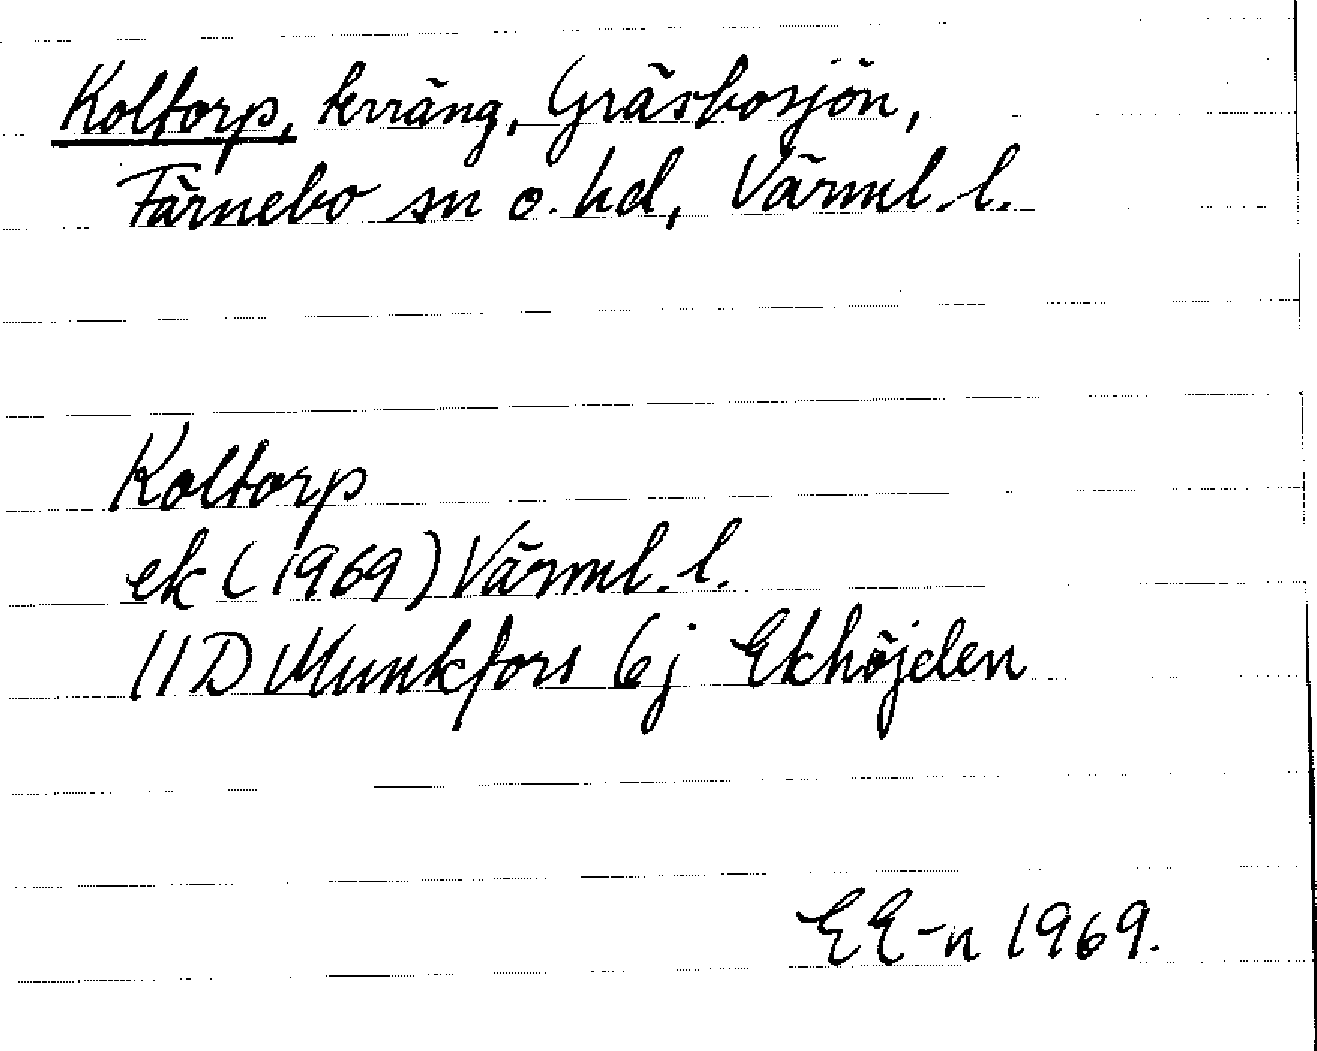 Koltorp, terräng, Gräsbosjön,
Färnebo sn o. hd, Värml. l.
Koltorp
ek (1969) Värml. l.
11D Munkfors 6j Ekhöjden
EE-n 1969.